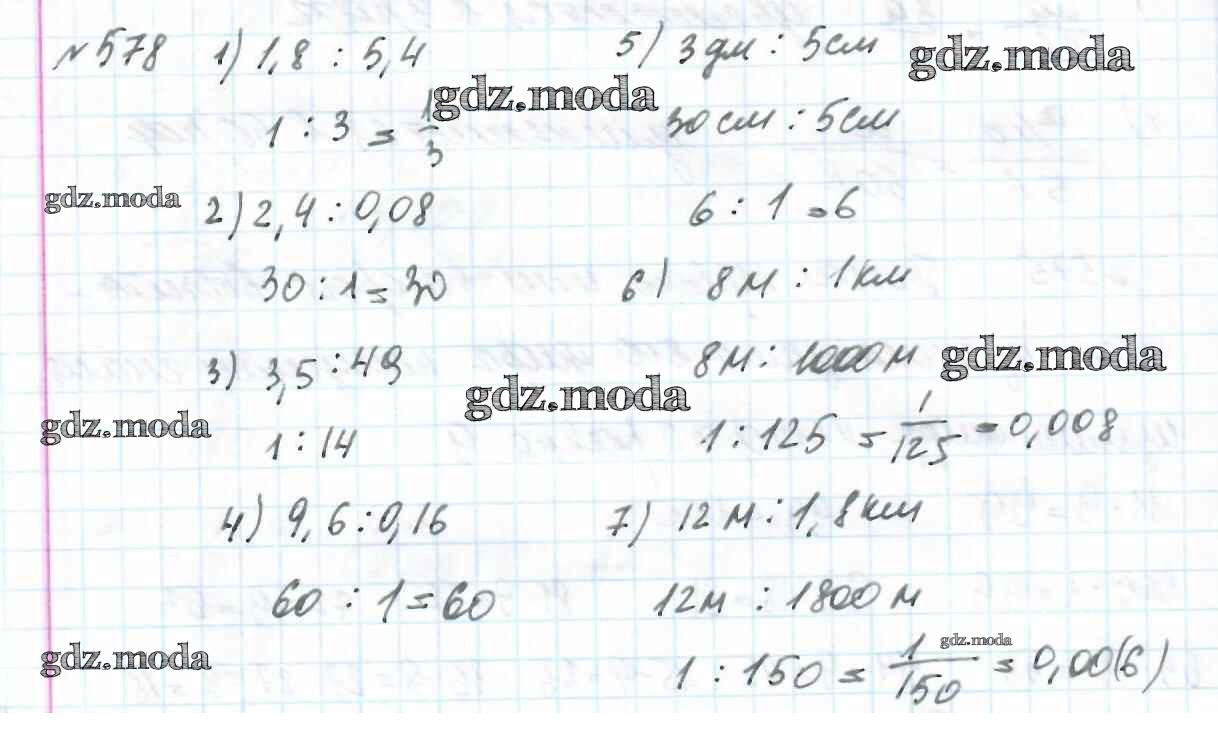 № 578 1) 1,8 : 5,4
1 : 3 = 1/3
2) 2,4 : 0,08
30 : 1 = 30
3) 3,5 : 49
1 : 14
4) 9,6 : 0,16
60 : 1 = 60
5) 3 дм : 5 см
30 см : 5 см
6 : 1 = 6
6) 8 м : 1 км
8 м : 1000 м
1 : 125 = 1/125 = 0,008
7) 12 м : 1,8 км
12 м : 1800 м
1 : 150 = 1/150 = 0,00(6)
gdz.moda
gdz.moda
gdz.moda
gdz.moda
gdz.moda
gdz.moda
gdz.moda
gdz.moda